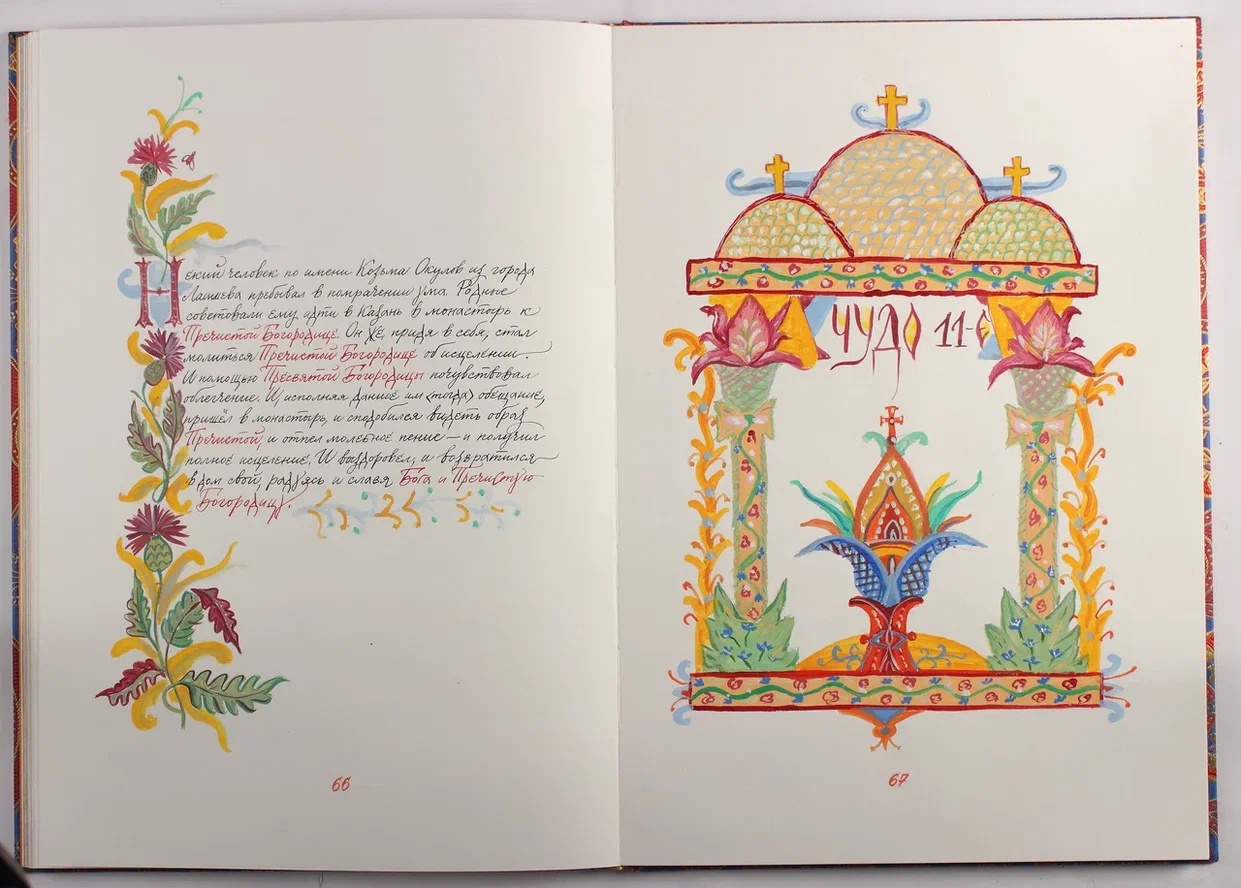 Некий человек по имени Козьма Окулов из города
Лаишева пребывал в помрачении ума. Родные
советовали ему идти в Казань в монастырь к
Пречистой Богородице. Он же, придя в себя, стал
молиться Пречистой Богородице об исцелении.
И помощью Пресвятой Богородицы почувствовал
облегчение. И, исполняя данное им <тогда> обещание,
пришёл в монастырь, и сподобился видеть образ
Пречистой, и отпел молебное пение – и получил
полное исцеление. И выздоровел, и возвратился
в дом свой, радуясь и славя Бога и Пречистую
Богородицу.
66
ЧУДО 11-е
67